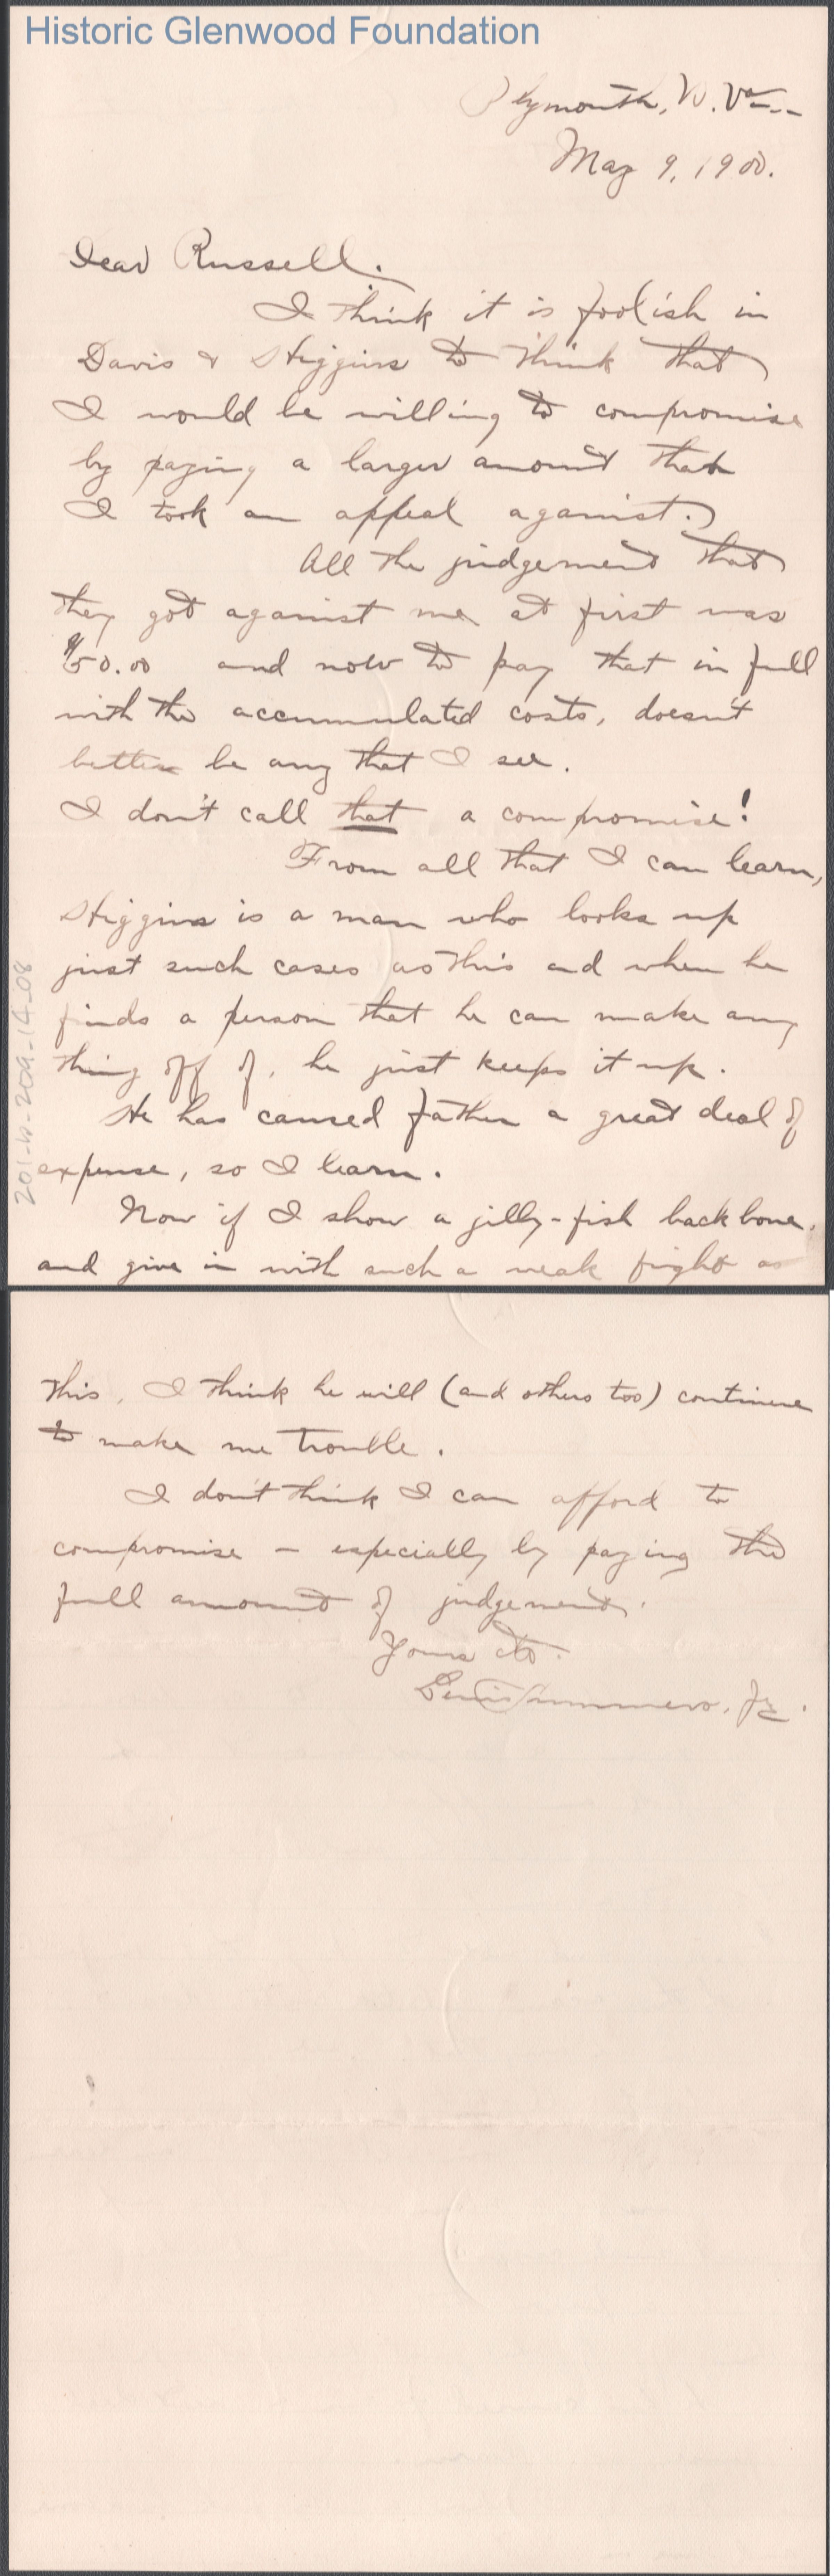 Historic Glenwood Foundation
Plymouth, W. Va.
May 9, 1900.
Dear Russell.
I think it is foolish in
Davis & Higgins to think that
I would be willing to compromise
by paying a larger amount that
I took an appeal against.
All the judgement that
they got against me at first was
$50.00 and now to pay that in full
with the accumulated costs, doesn't
better be any that I see.
I don't call that a compromise!
From all that I can learn,
Higgins is a man who looks up
just such cases as this and when he
finds a person that he can make any
thing off of, he just keeps it up.
He has caused father a great deal of
expense, so I learn.
Now if I show a jilly-fish backbone,
and give in with such a weak fight as
this, I think he will (and others too) continue
to make me trouble.
I don't think I can afford to
compromise – especially by paying the
full amount of judgement.
Yours etc.
Lewis Summers, Jr.